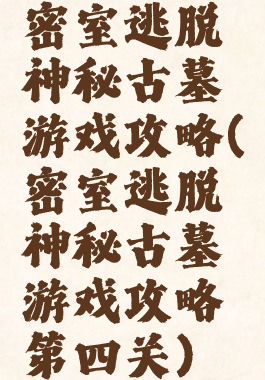 密室逃脱
神秘古墓
游戏攻略(
密室逃脱
神秘古墓
游戏攻略
第四关)